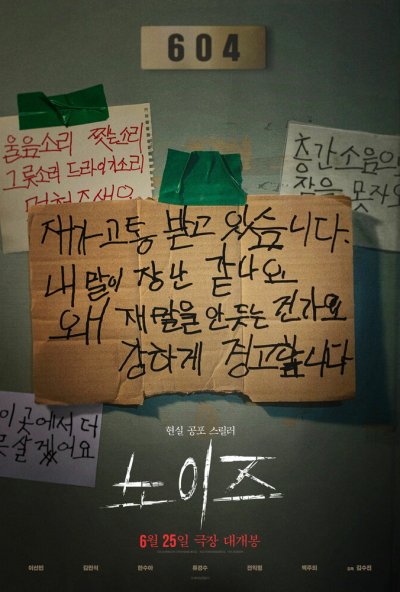 604
울음소리 찢는소리
그릇소리 드라이기소리
멈춰주세요
층간소음으
잠을 못자요
제가 고통 받고 있습니다.
내 말이 장난 같나요.
왜 제 말을 안 듣는 건가요
강하게 경고합니다
이 곳에서 더
못 살겠어요
현실 공포 스릴러
노이즈
6월 25일 극장 대개봉
이선빈 김민석 한수아 류경수 전익령 백주희 감독 김수진